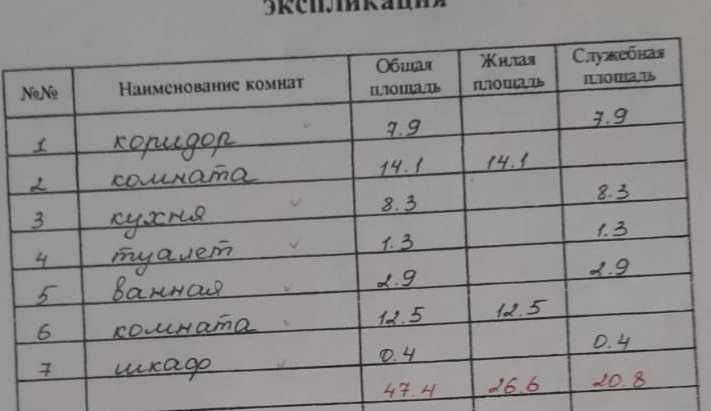 экспликация
№№ Наименование комнат Общая площадь Жилая площадь Служебная площадь
1 коридор 7.9 7.9
2 комната 14.1 14.1
3 кухня 8.3 8.3
4 туалет 1.3 1.3
5 ванная 2.9 2.9
6 комната 12.5 12.5
7 шкаф 0.4 0.4
47.4 26.6 20.8